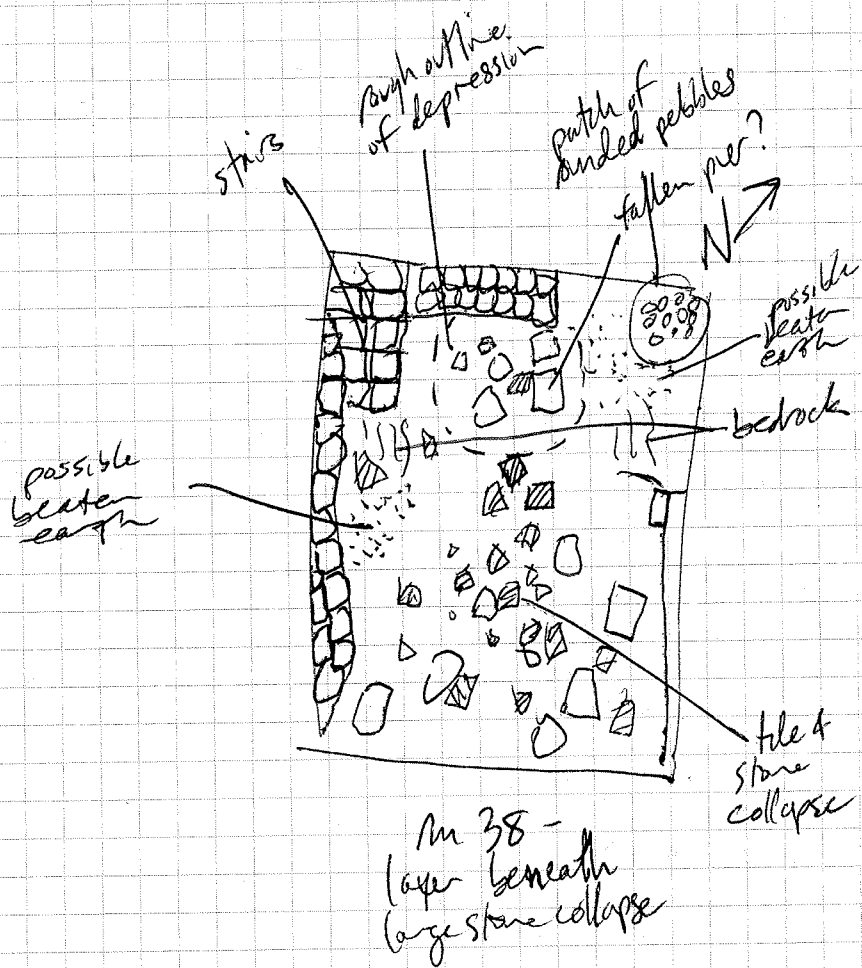 rough outline
of depression
stairs
patch of
rounded pebbles
fallen pier?
N
possible
beaten
earth
bedrock
possible
beaten
earth
tile &
stone
collapse
Rm 38 -
layer beneath
large stone collapse